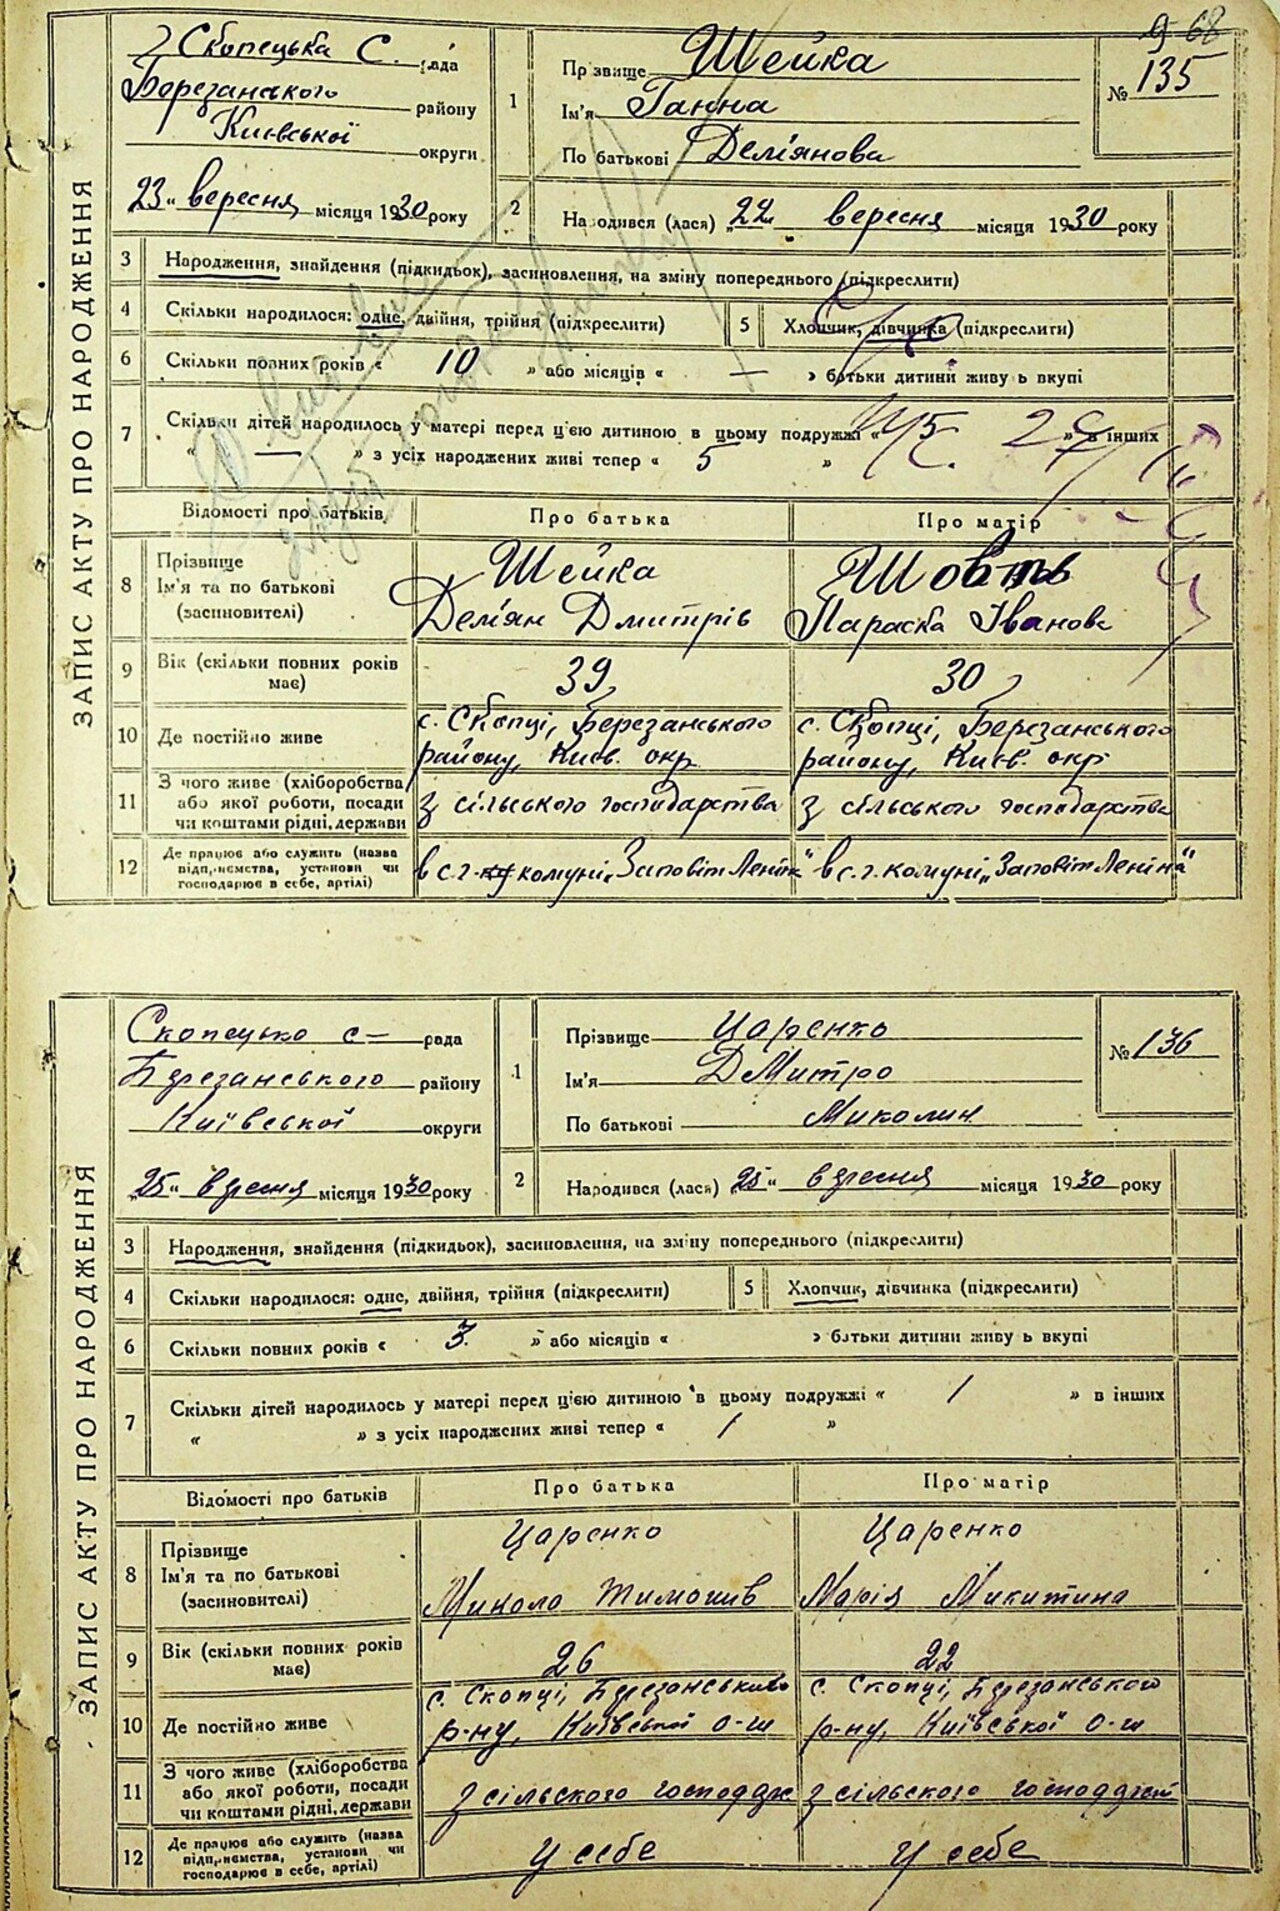 68
Скопецька С. рада
Березанського району
Києвської округи
23 вересня місяця 1930 року
ЗАПИС АКТУ ПРО НАРОДЖЕННЯ
1
Прізвище Шейка
Ім'я Ганна
По батькові Дем'янова
№ 135
2
Народився (лася) „22„ вересня місяця 1930 року
3 Народження, знайдення (підкидьок), засиновлення, на зміну попереднього (підкреслити)
4 Скільки народилося: одне, двійня, трійня (підкреслити)
5 Хлопчик, дівчинка (підкреслити)
6 Скільки повних років « 10 » або місяців « — » батьки дитини живуть вкупі
7 Скільки дітей народилось у матері перед цією дитиною в цьому подружжі « » в інших
« — » з усіх народжених живі тепер « 5 »
Відомості про батьків Про батька Про матір
8 Прізвище Шейка
Ім'я та по батькові
(засиновителі) Дем'ян Дмитрів Параска Іванова
9 Вік (скільки повних років має) 39 30
10 Де постійно живе с. Скопці, Березанського с. Скопці, Березанського
району, Києв. окр. району, Києв. окр
11 З чого живе (хліборобства
або якої роботи, посади з сільського господарства з сільського господарства
чи коштами рідні, держави
12 Де працює або служить (назва
підприємства, установи чи в с.г. комуні „Заповіт Леніна" в с.г. комуні „Заповіт Леніна"
господарює в себе, артілі)
Скопецько с— рада
Березанського району
Київської округи
„25„ вересня місяця 1930 року
ЗАПИС АКТУ ПРО НАРОДЖЕННЯ
1
Прізвище Царенко
Ім'я Дмитро
По батькові Миколин
№ 136
2
Народився (лася) „25„ вересня місяця 1930 року
3 Народження, знайдення (підкидьок), засиновлення, на зміну попереднього (підкреслити)
4 Скільки народилося: одне, двійня, трійня (підкреслити)
5 Хлопчик, дівчинка (підкреслити)
6 Скільки повних років « 3. » або місяців « » батьки дитини живуть вкупі
7 Скільки дітей народилось у матері перед цією дитиною в цьому подружжі « 1 » в інших
« » з усіх народжених живі тепер « 1 »
Відомості про батьків Про батька Про матір
8 Прізвище Царенко Царенко
Ім'я та по батькові
(засиновителі) Микола Тимошів Марія Микитина
9 Вік (скільки повних років має) 26 22
10 Де постійно живе с. Скопці, Березанського с. Скопці, Березанського
р-ну, Київської о-ги р-ну, Київської о-ги
11 З чого живе (хліборобства
або якої роботи, посади з сільского з сільского
чи коштами рідні, держави
12 Де працює або служить (назва
підприємства, установи чи у себе у себе
господарює в себе, артілі)